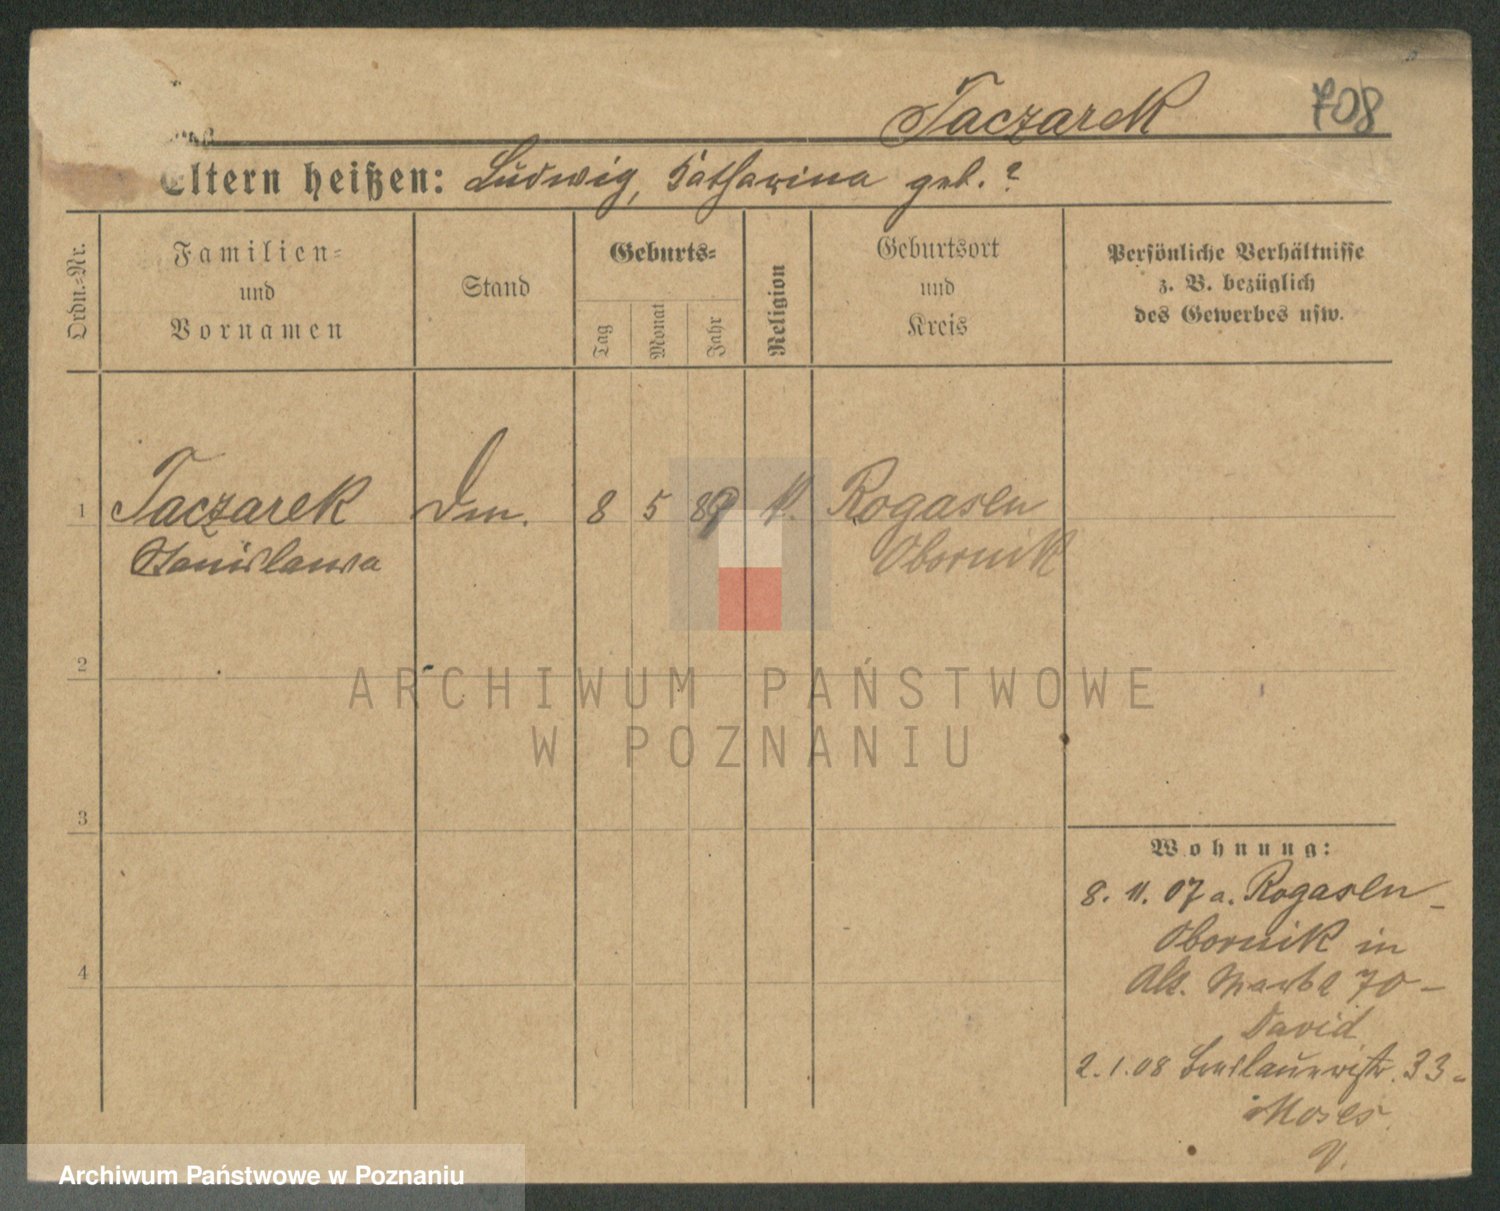 Taczarek
708
Eltern heißen: Ludwig, Katharina geb. ?
Ordn.-Nr.
Familien-
und
Vornamen
Stand
Geburts-
Tag
Monat
Jahr
Religion
Geburtsort
und
Kreis
Persönliche Verhältnisse
z. B. bezüglich
des Gewerbes usw.
1
Taczarek
Stanislawa
8
5
89
Rogasen
Obornik
2
3
4
Wohnung:
8. 11. 07 a. Rogasen-
Obornik in
Alt. Markt 70-
David
2. 1. 08 Breslauerstr. 33-
Moses
V.
ARCHIWUM PAŃSTWOWE
W POZNANIU
Archiwum Państwowe w Poznaniu